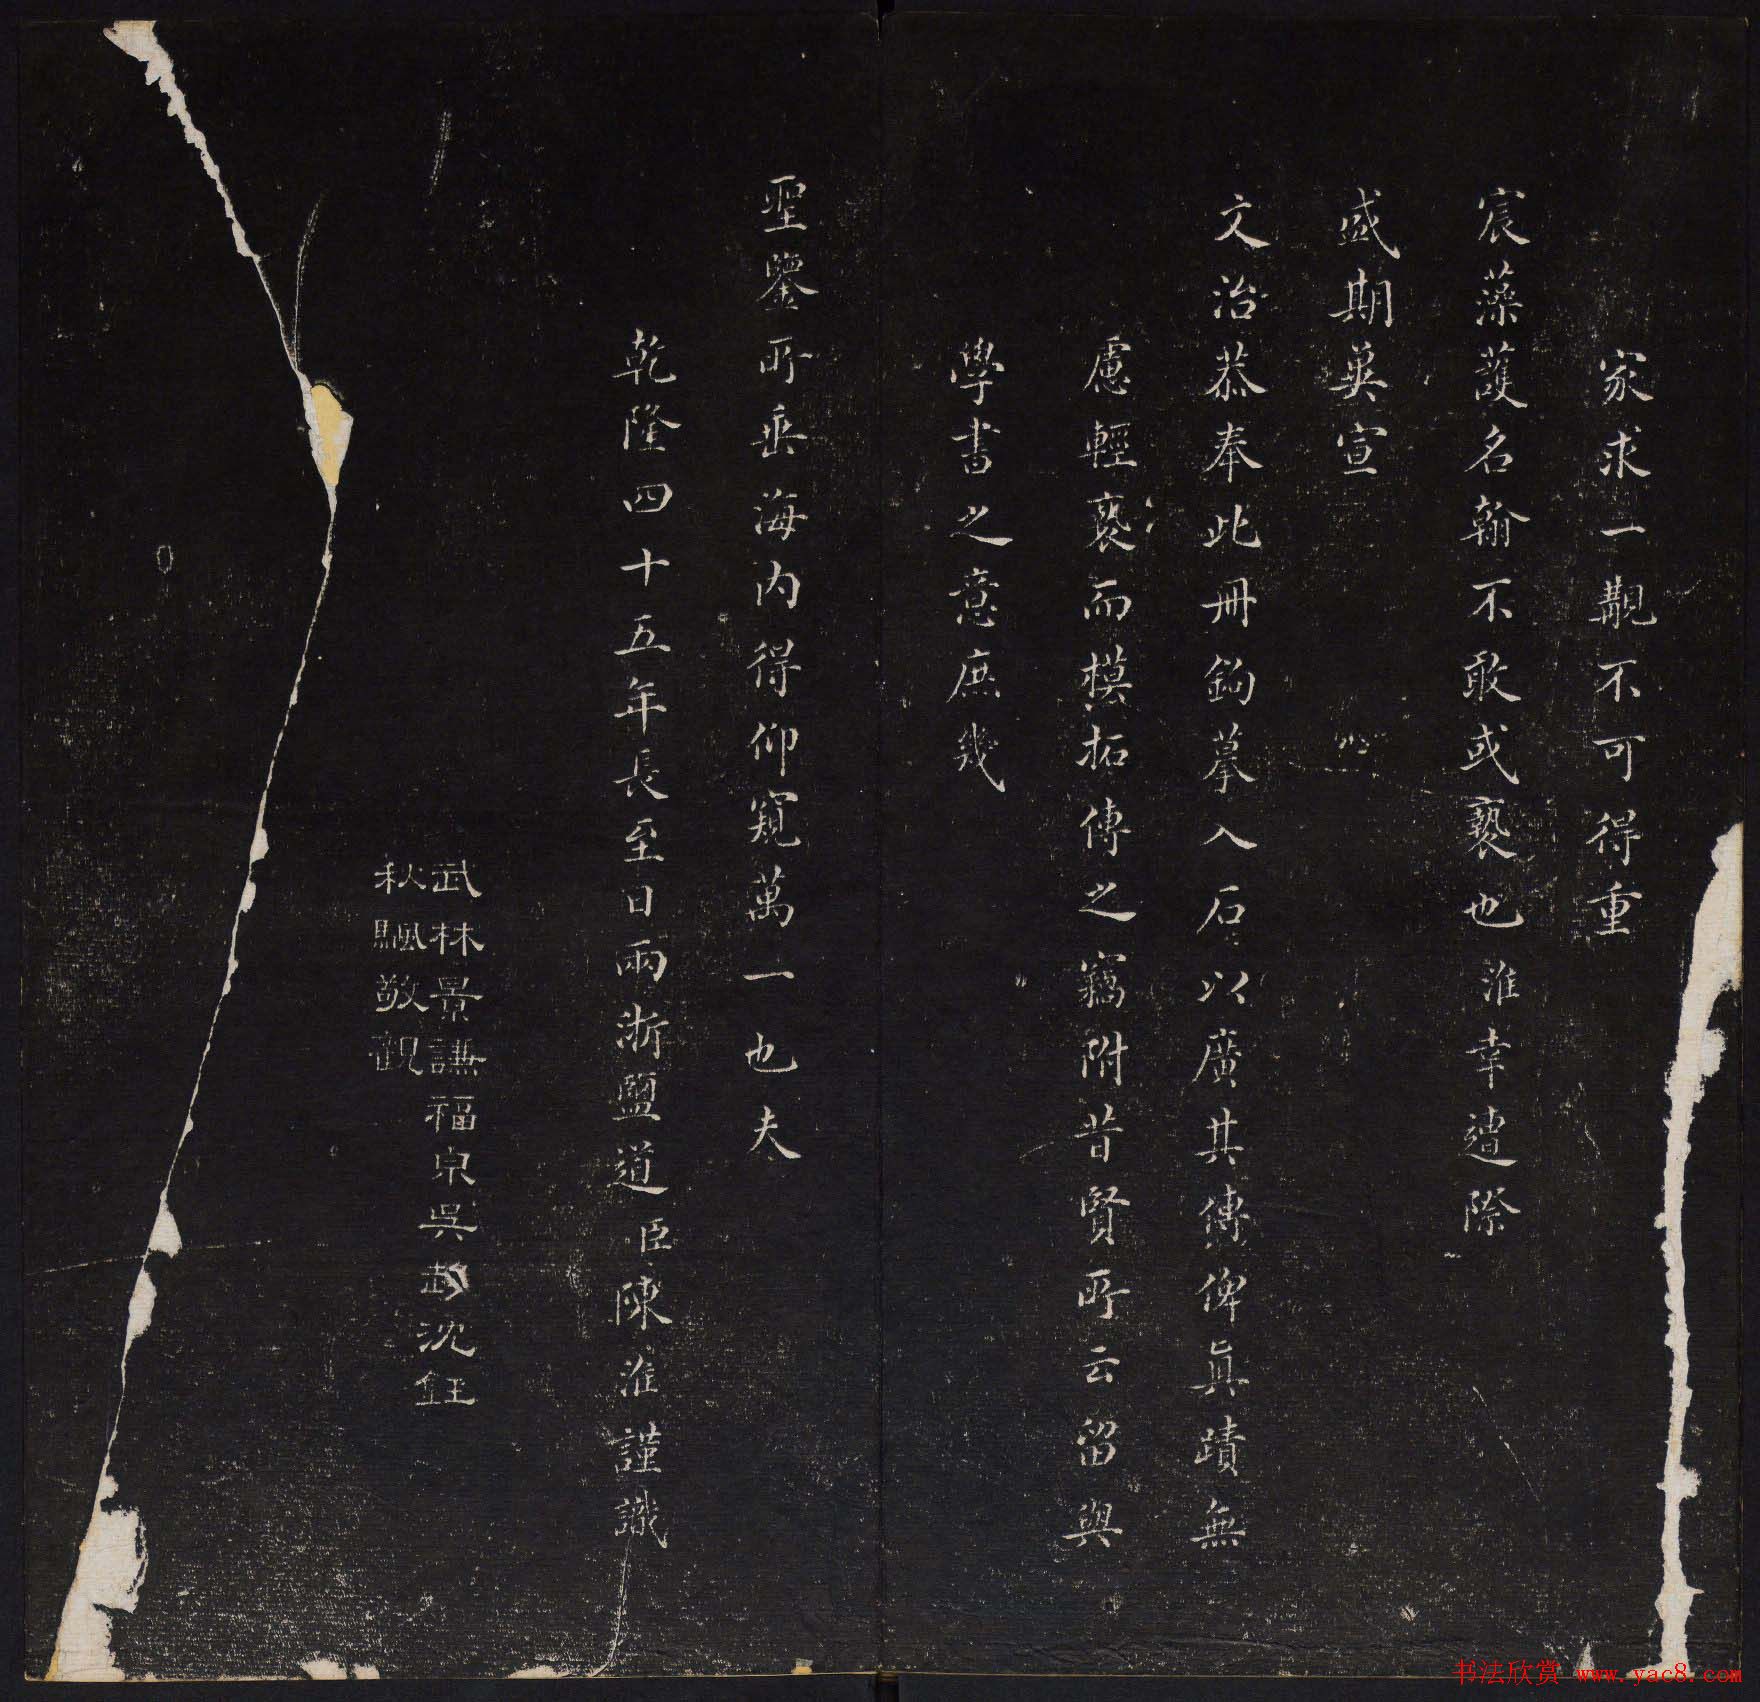 家求一觀不可得重
宸藻護名翰不敢或褻也淮幸遭際
盛期寅宣
文治恭奉此冊鉤摹入石以廣其傳俾眞蹟無
慮輕褻而模拓傳之竊附昔賢所云留與
學書之意庶幾
聖鑒所垂海內得仰窺萬一也夫
乾隆四十五年長至日兩浙鹽道臣陳淮謹識
武林景謙福泉吳 沈鈺
秋颿敬觀
书法欣赏 www.yac8.com